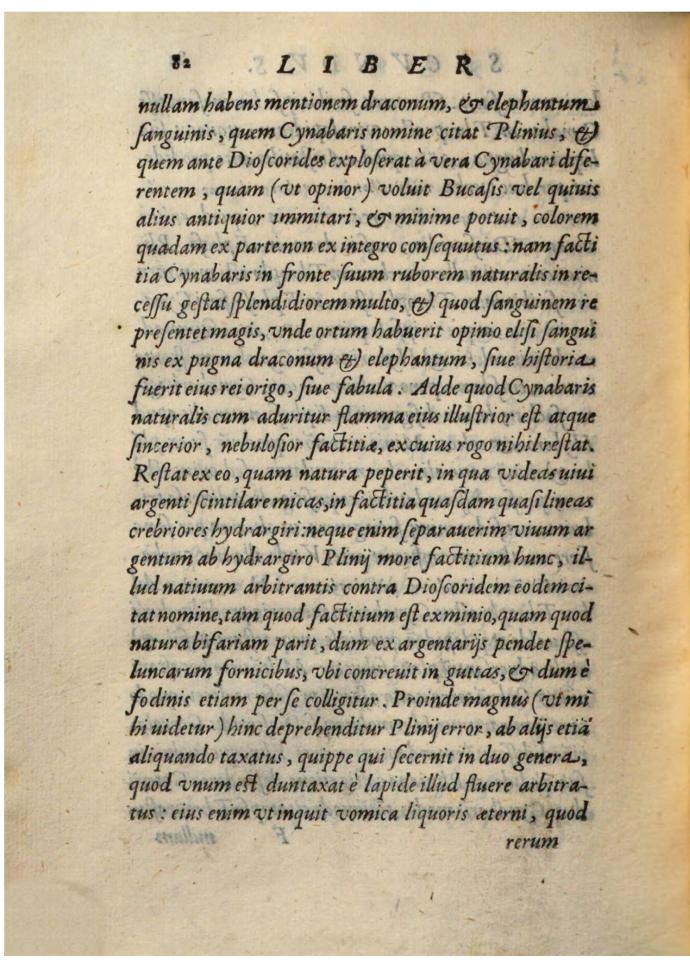 82 LIBER
nullam habens mentionem draconum, & elephantum
ſanguinis, quem Cynabaris nomine citat Plinius, &
quem ante Dioſcorides exploſerat à vera Cynabari dife-
rentem, quam (vt opinor) voluit Bucaſis vel quiuis
alius antiquior immitari, & minime potuit, colorem
quadam ex parte non ex integro conſequutus: nam facti
tia Cynabaris in fronte ſuum ruborem naturalis in re-
ceſſu geſtat ſplendidiorem multo, & quod ſanguinem re
preſentet magis, vnde ortum habuerit opinio eliſi ſangui
nis ex pugna draconum & elephantum, ſiue hiſtoria
fuerit eius rei origo, ſiue fabula. Adde quod Cynabaris
naturalis cum aduritur flamma eius illuſtrior eſt atque
ſincerior, nebuloſior factitiæ, ex cuius rogo nihil reſtat.
Reſtat ex eo, quam natura peperit, in qua videas uiui
argenti ſcintilare micas, in factitia quaſdam quaſi lineas
crebriores hydrargiri: neque enim ſeparauerim viuum ar
gentum ab hydrargiro Plinij more factitium hunc, il-
lud natiuum arbitrantis contra Dioſcoridem eodem ci-
tat nomine, tam quod factitium eſt ex minio, quam quod
natura bifariam parit, dum ex argentarijs pendet ſpe-
luncarum fornicibus, vbi concreuit in guttas, & dum è
fodinis etiam per ſe colligitur. Proinde magnus (vt mi
hi uidetur) hinc deprehenditur Plinij error, ab alijs etiã
aliquando taxatus, quippe qui ſecernit in duo genera,
quod vnum eſt duntaxat è lapide illud fluere arbitra-
tus: eius enim vt inquit vomica liquoris æterni, quod
rerum